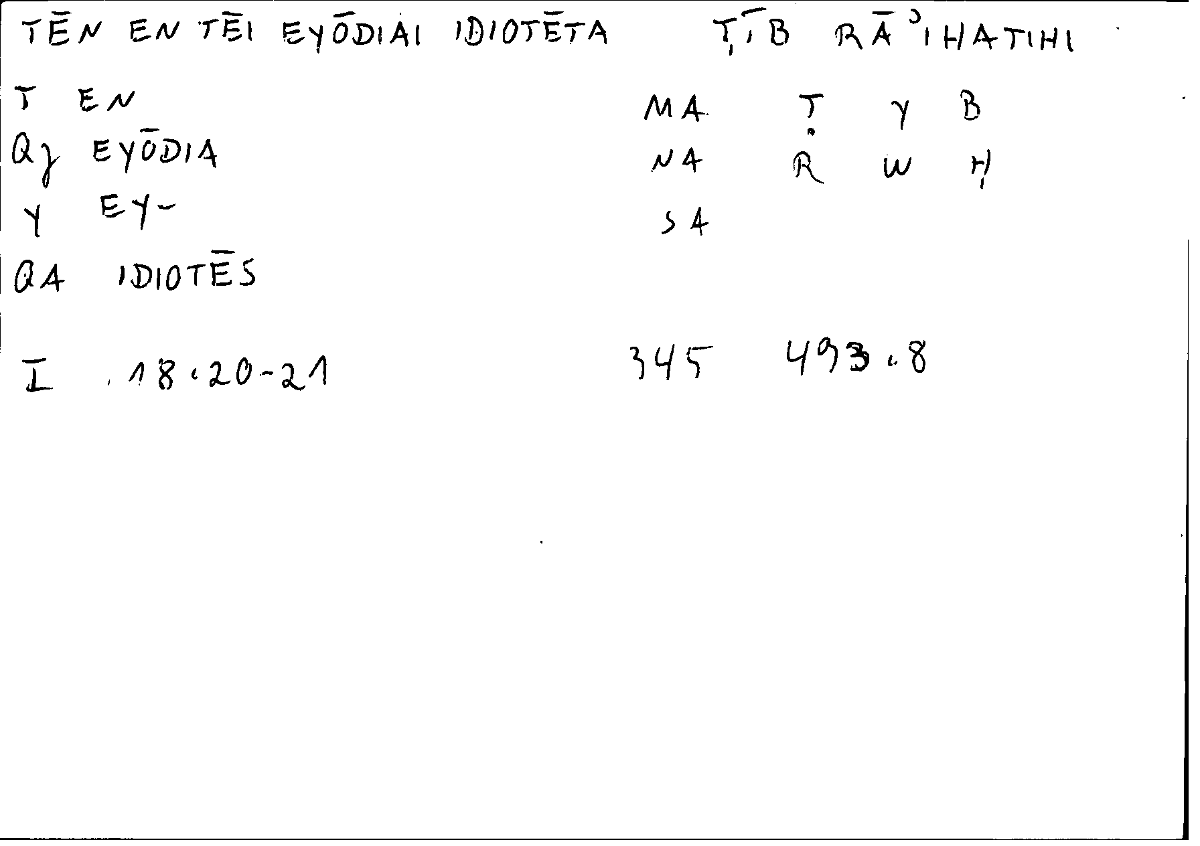 TĒN EN TĒI EYŌDIAI IDIOTĒTA ṬĪB RĀʾIHATIHI
T EN MA Ṭ Y B
QZ EYŌDIA NA R W Ḥ
Y EY- SA
QA IDIOTĒS
I .18.20-21 345 493.8